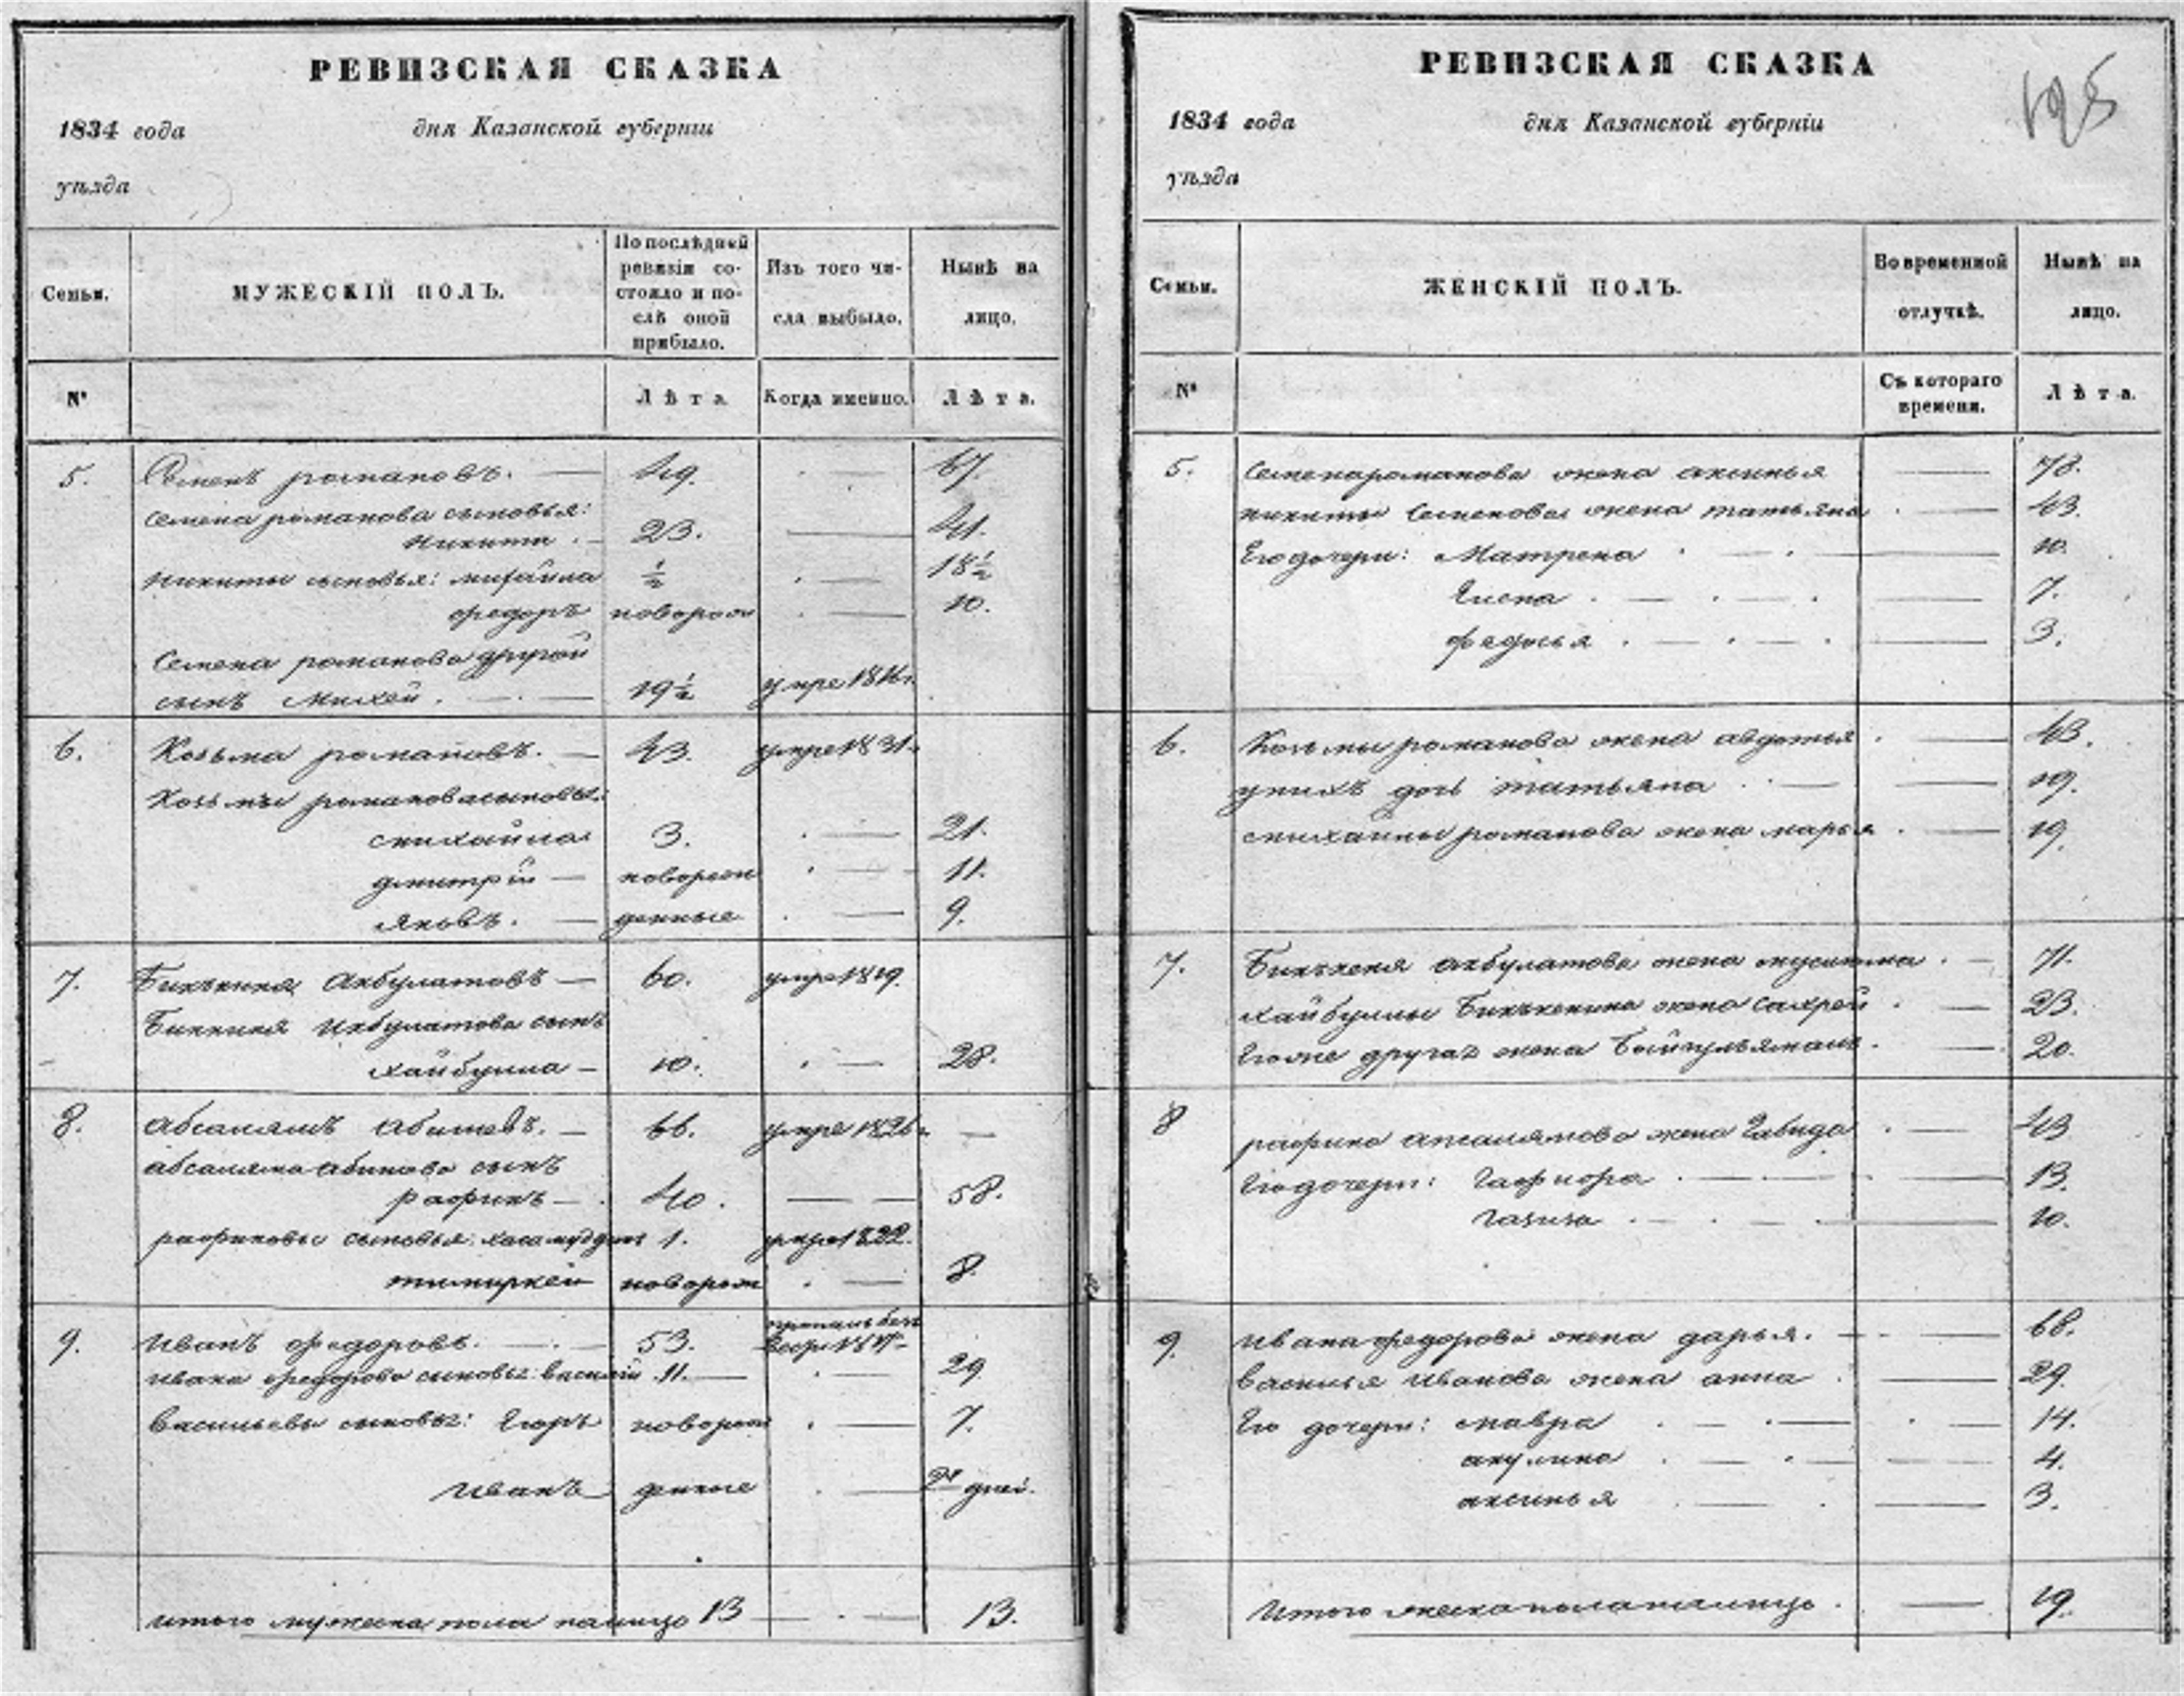 РЕВИЗСКАЯ СКАЗКА
1834 года дня Казанской губерніи
уѣзда
Семьи. МУЖЕСКІЙ ПОЛЪ. По послѣдней ревизіи состояло и послѣ оной прибыло. Изъ того числа выбыло. Нынѣ на лицо.
№ Лѣта Когда именно. Лѣта.
5. Семенъ романовъ. 49. 67.
Семена романова сыновья:
никита 23. 41.
никиты сыновья: михайла ½ 18½
федоръ новорож 10.
Семена романова другой
сынъ Михей. 19½ умре 1816г.
6. Козьма романовъ. 43. умре 1831.
Козьмы романова сыновья:
михайла 3. 21.
дмитрій новорож 11.
яковъ. денные 9.
7. Бикъкиня Акбулатовъ 60. умре 1819.
Биккиня Икбулатова сынъ
хайбулла 10. 28.
8. абсалямъ абишевъ. 66. умре 1826.
абсаляма абишова сынъ
рафикъ 40. 58.
рафиковы сыновья: хасамутдинъ 1. умре 1822.
тимиркей новорож 8.
9. Иванъ федоровъ. 53. пропалъ безъ
Ивана федорова сыновья: василій 11. 29
васильевы сыновья: Егоръ новорож 7.
Иванъ денные дней.
итого мужеска пола налицо 13 13.
РЕВИЗСКАЯ СКАЗКА
1834 года дня Казанской губерніи
уѣзда
Семьи. ЖЕНСКІЙ ПОЛЪ. Во временной отлучкѣ. Нынѣ на лицо.
№ Съ котораго времени. Лѣта.
5. Семена романова жена аксинья 78.
никиты Семенова жена татьяна 43.
Его дочери: Матрена 10.
Елена 7.
федосья 3.
6. Козьмы романова жена авдотья 63.
у нихъ дочь татьяна 19.
михайлы романова жена марья 19.
7. Бикъкеня акбулатова жена 71.
хайбуллы Бикъкенина жена Сахрей 23.
Его же другая жена 20.
8 рафика апсалямова жена Габида 43
Его дочери: 13.
Газиза 10.
9. Ивана федорова жена дарья. 68.
Василья Иванова жена анна 29.
Его дочери: мавра 14.
акулина 4.
аксинья 3.
Итого женска пола налицо 19.